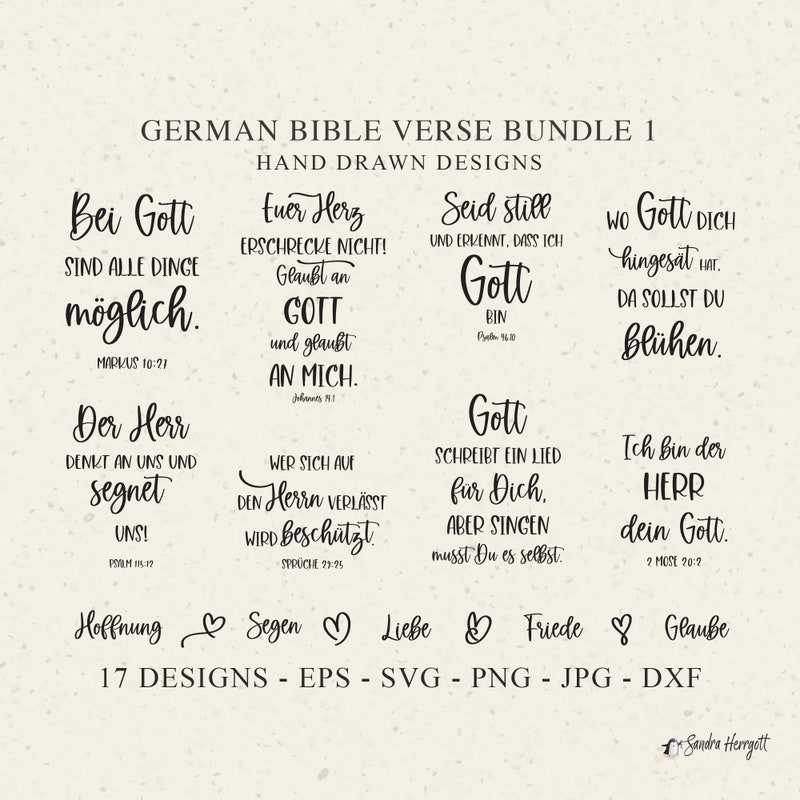 GERMAN BIBLE VERSE BUNDLE 1
HAND DRAWN DESIGNS
Bei Gott
SIND ALLE DINGE
möglich.
MARKUS 10:27
Euer Herz
ERSCHRECKE NICHT!
Glaubt an
GOTT
und glaubt
AN MICH.
Johannes 14:1
Seid still
UND ERKENNT, DASS ICH
Gott
BIN
Psalm 46:10
WO Gott DICH
hingesät HAT,
DA SOLLST DU
blühen.
Der Herr
DENKT AN UNS UND
segnet
UNS!
PSALM 115:12
WER SICH AUF
DEN Herrn VERLÄSST
WIRD beschützt.
SPRÜCHE 29:25
Gott
SCHREIBT EIN LIED
für Dich,
ABER SINGEN
musst Du es selbst.
Ich bin der
HERR
dein Gott.
2 MOSE 20:2
Hoffnung Segen Liebe Friede Glaube
17 DESIGNS - EPS - SVG - PNG - JPG - DXF
Sandra Herrgott